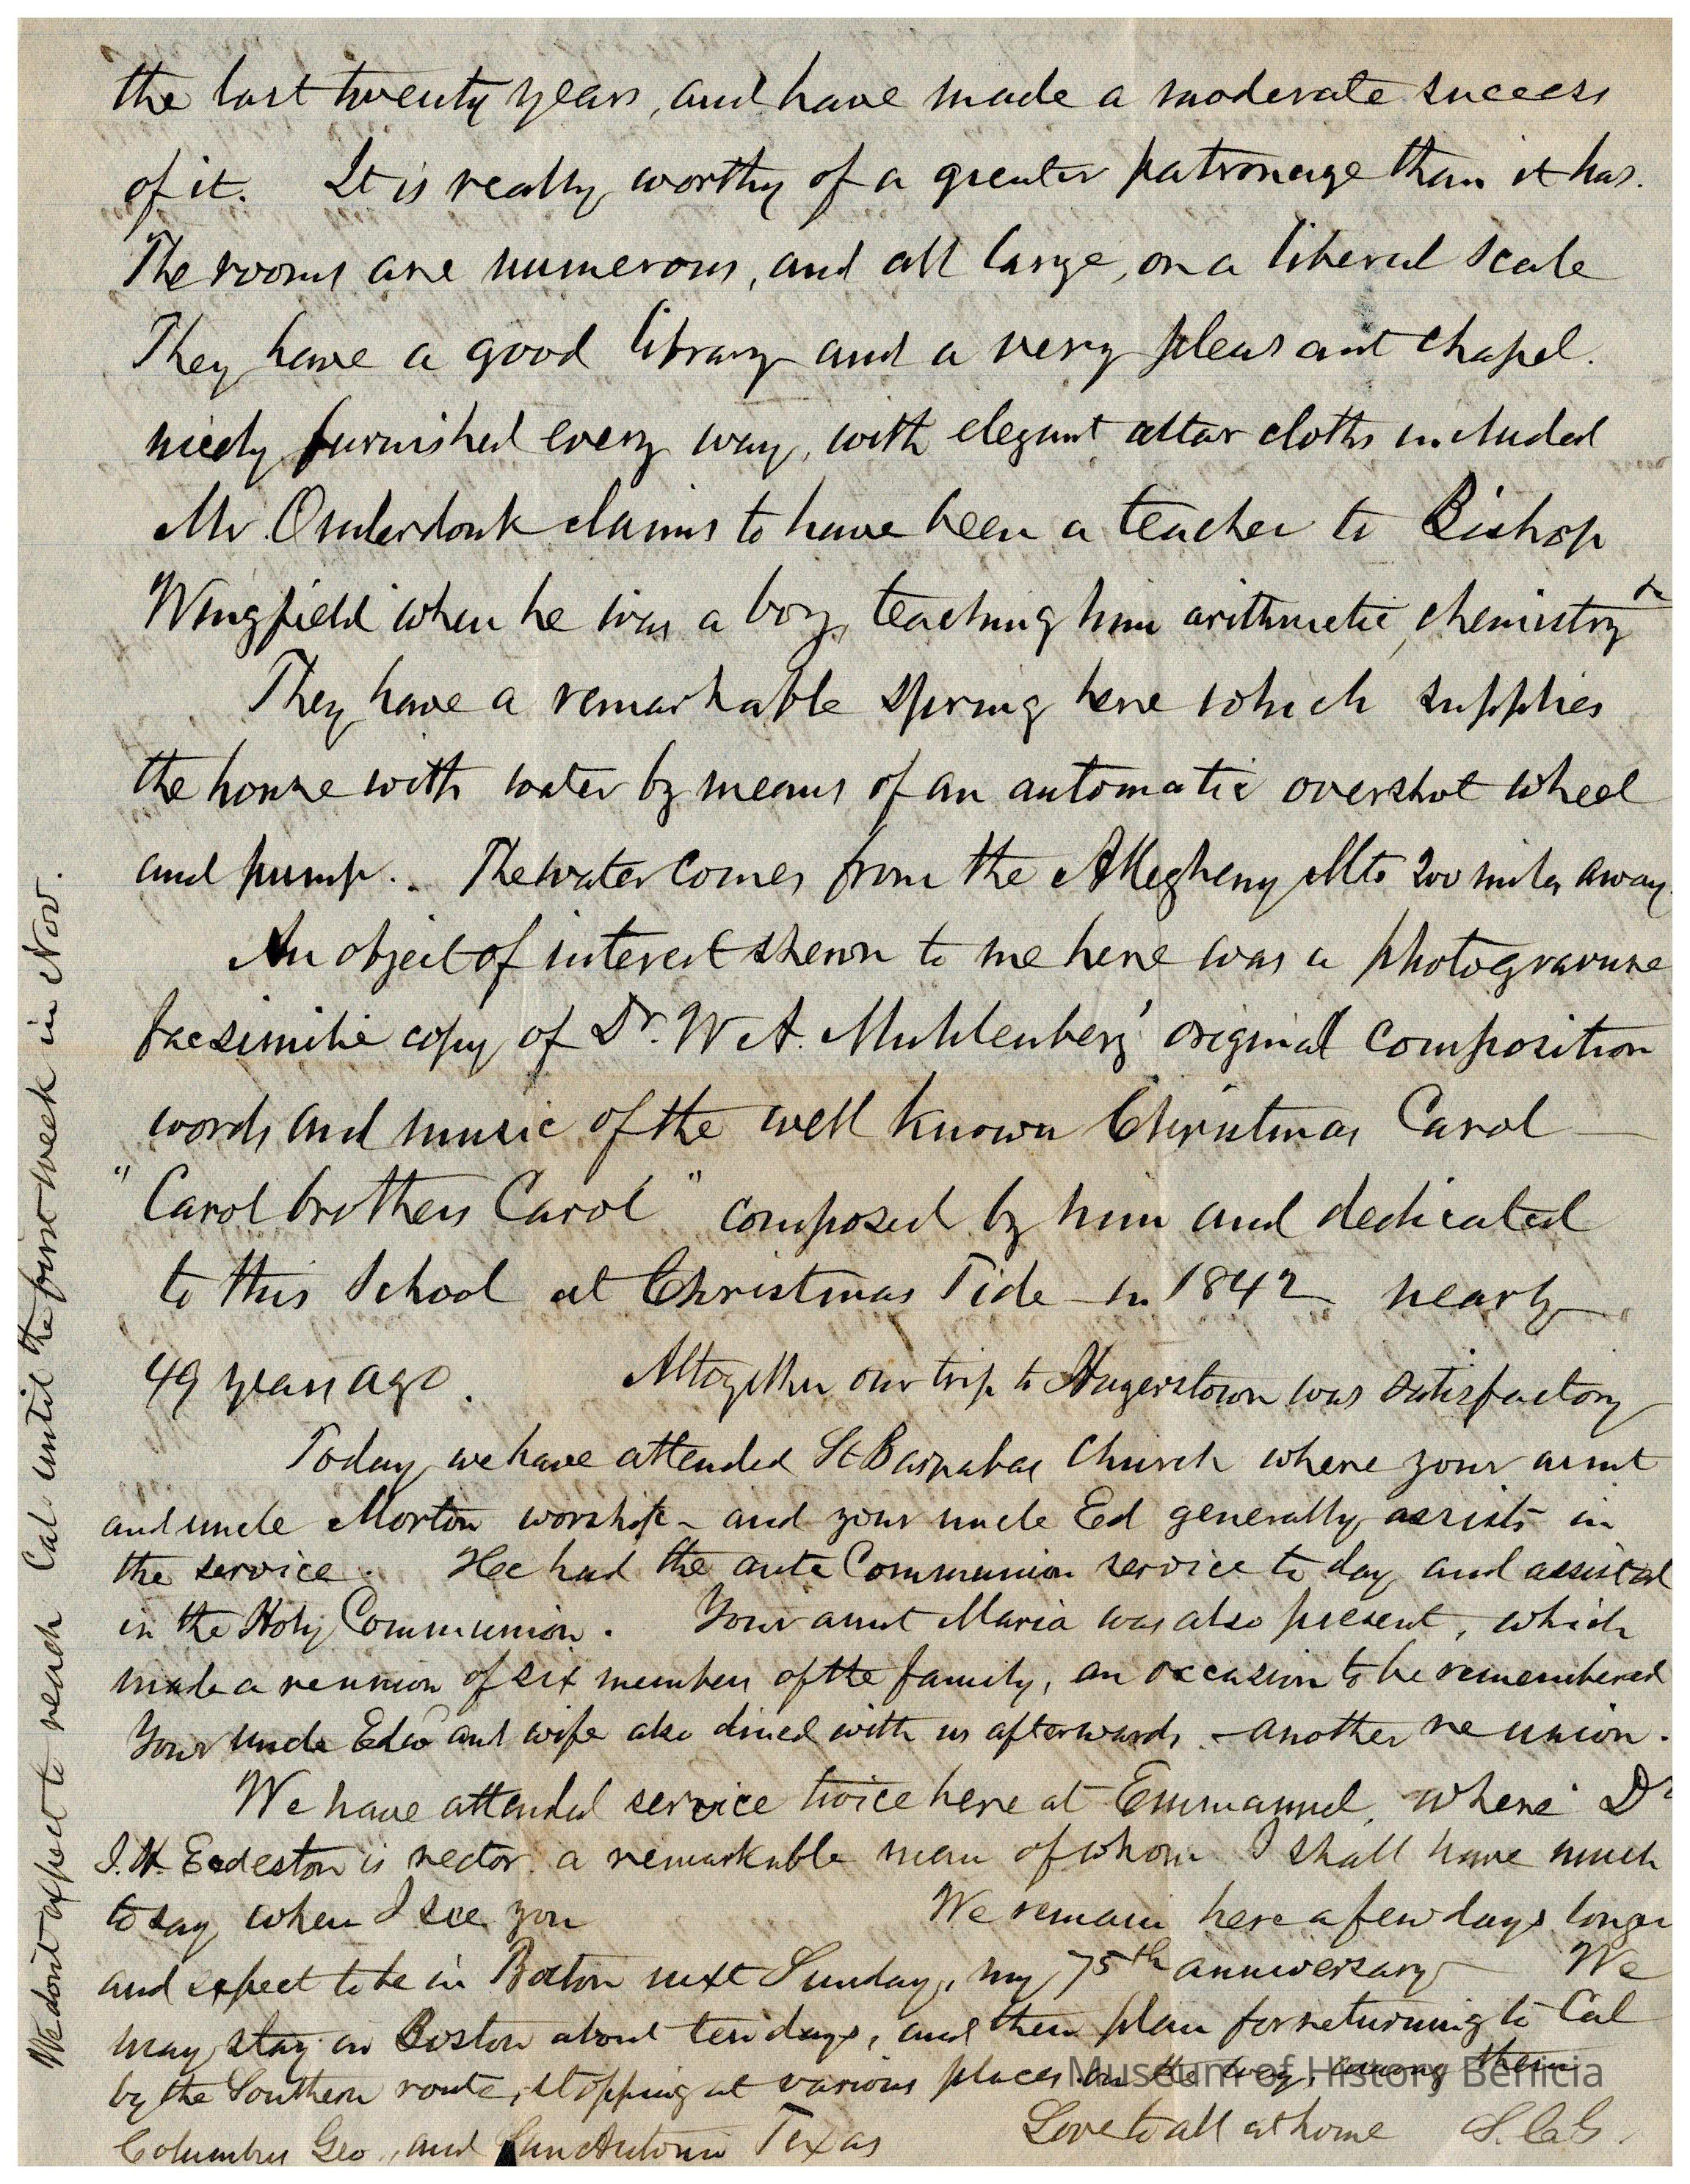 the last twenty years, and have made a moderate success
of it. It is really worthy of a greater patronage than it has.
The rooms are numerous, and all large, on a liberal scale
They have a good library and a very pleasant chapel.
nicely furnished every way, with elegant altar cloths included
Mr. Onderdonk claims to have been a teacher to Bishop
Wingfield when he was a boy, teaching him arithmetic, chemistry &c
They have a remarkable spring here which supplies
the house with water by means of an automatic overshot wheel
and pump. The water comes from the Allegheny Mts 200 miles away.
An object of interest shewn to me here was a photogravure
facsimilie copy of Dr. W. A. Muhlenberg' original composition
words and music of the well known Christmas Carol —
"Carol brothers Carol" composed by him and dedicated
to this School at Christmas Tide in 1842 nearly
49 years ago. Altogether our trip to Hagerstown was satisfactory
Today we have attended St Barnabas Church where your aunt
and uncle Morton worship - and your uncle Ed generally assists in
the service. Hee had the ante Communion service to day and assisted
in the Holy Communion. Your aunt Maria was also present, which
made a reunion of six members of the family, an occasion to be remembered
Your uncle Edw and wife also dined with us afterwards - another reunion.
We have attended service twice here at Emmanuel, where Dr
J. H. Eccleston is rector, a remarkable man of whom I shall have much
to say when I see you We remain here a few days longer
and expect to be in Boston next Sunday, my 75th anniversary - We
may stay in Boston about ten days, and then plan for returning to Cal
by the Southern route, stopping at various places on the way, among them
Columbus Geo., and San Antonio Texas Love to all at home S. C. G.
We dont expect to reach Cal until the first week in Nov.
Museum of History Benicia